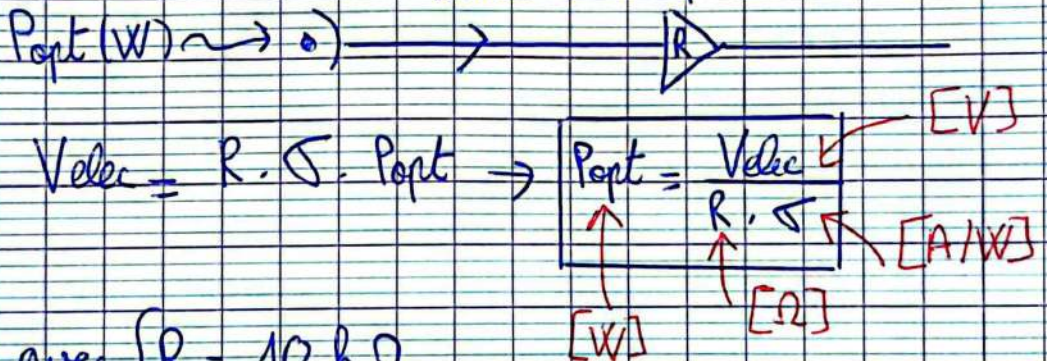 Popt (W) R
Velec = R . σ . Popt → Popt = Velec / R . σ
[V]
[A/W]
[W] [Ω]
avec R = 10 k Ω